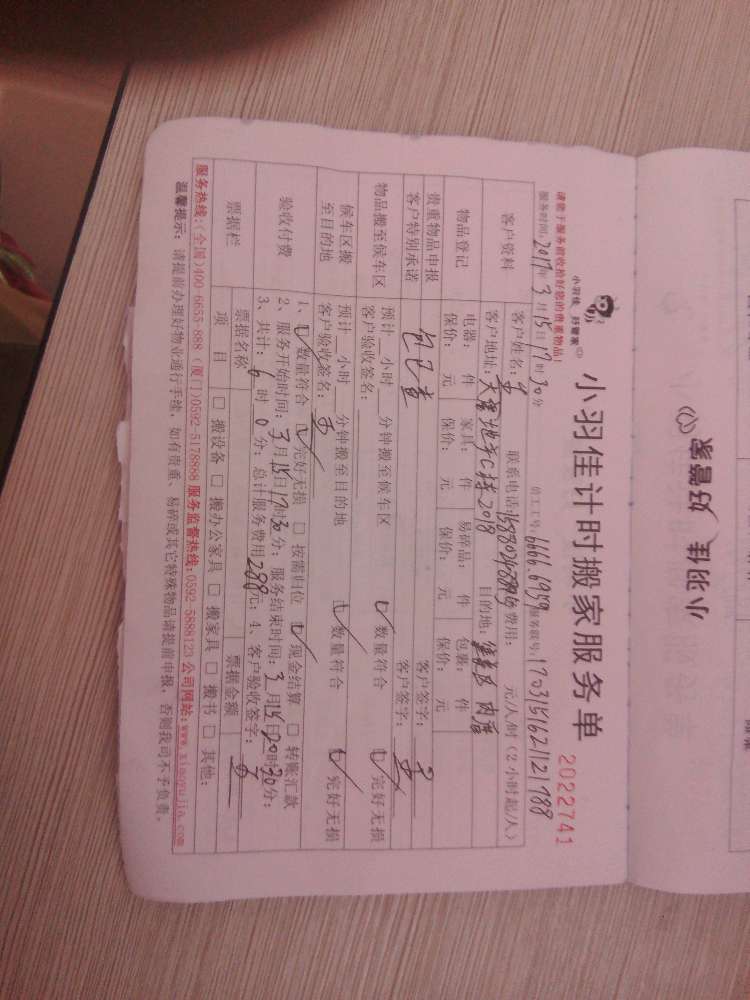 小羽佳 好管家
小羽佳 好管家
小羽佳计时搬家服务单
2022741
请您于服务前收拾好您的贵重物品!
服务时间: 2017年3月15日17时30分 员工工号: 6666.6959 服务账号: 1703151621121788
客户资料
客户姓名: 联系电话: 费用: 元/人/时(2小时起/人)
客户地址: C栋2018 目的地:
物品登记
电器: 件 家具: 件 易碎品: 件 包裹: 件
保价: 元 保价: 元 保价: 元 保价: 元
贵重物品申报
客户特别承诺
包已查
客户签字:
客户签字:
物品搬至候车区
预计 小时 分钟搬至候车区 数量符合 完好无损
客户验收签名:
候车区搬
至目的地
预计 小时 分钟搬至目的地 数量符合 完好无损
客户验收签名:
验收付费
1、 数量符合 完好无损 □ 按需归位 现金结算 □ 转账汇款
2、服务开始时间: 3月15日17时30分; 服务结束时间: 3月15日20时30分;
3、共计: 6时0分; 总计服务费用288元; 4、客户验收签字:
票据栏
票据名称 票据金额
项 目 □ 搬设备 □ 搬办公家具 □ 搬家具 □ 搬书 □ 其他:
服务热线:(全国)400-6655-888 (厦门)0592-5178888 服务监督热线:0592-5888123 公司网站:www.xiaoyujia.com
温馨提示: 请提前办理好物业通行手续, 如有贵重、易碎或其它特殊物品请提前申报, 否则我司不予负责。